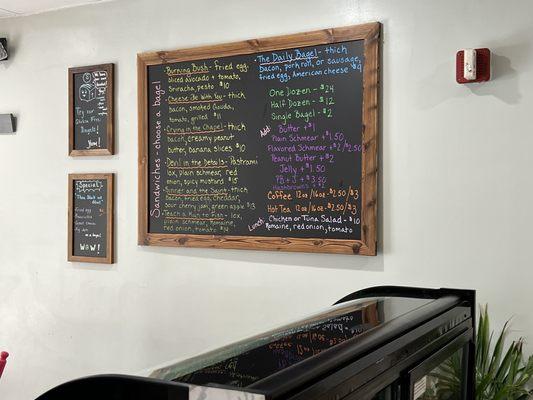 Try our
Gluten Free
Bagels!
Yum!
Specials
Thai Stack
on a bagel
WOW!
Sandwiches - choose a bagel
• Burning Bush - fried egg,
sliced avocado + tomato,
Sriracha, pesto $10
• Cheese Be With You - thick
bacon, smoked Gouda,
tomato, grilled $11
• Crying in the Chapel - thick
bacon, creamy peanut
butter, banana slices $10
• Devil in the Details - Pastrami
lox, plain schmear, red
onion, spicy mustard $15
• Sinner and the Saint - thick
bacon, fried egg, cheddar,
sour cherry jam, green apple $13
• Teach a Man to Fish - lox,
plain schmear, romaine,
red onion, tomato $14
• The Daily Bagel - thick
bacon, pork roll, or sausage,
fried egg, American cheese $9
One Dozen - $24
Half Dozen - $12
Single Bagel - $2
Add
Butter + $1
Plain Schmear + $1.50
Flavored Schmear + $2/$2.50
Peanut Butter + $2
Jelly + $1.50
PB + J + $3.50
Hashbrowns
Coffee 12oz/16oz - $2.50/$3
Hot Tea 12oz/16oz - $2.50/$3
Lunch
Chicken or Tuna Salad - $10
Romaine, red onion, tomato